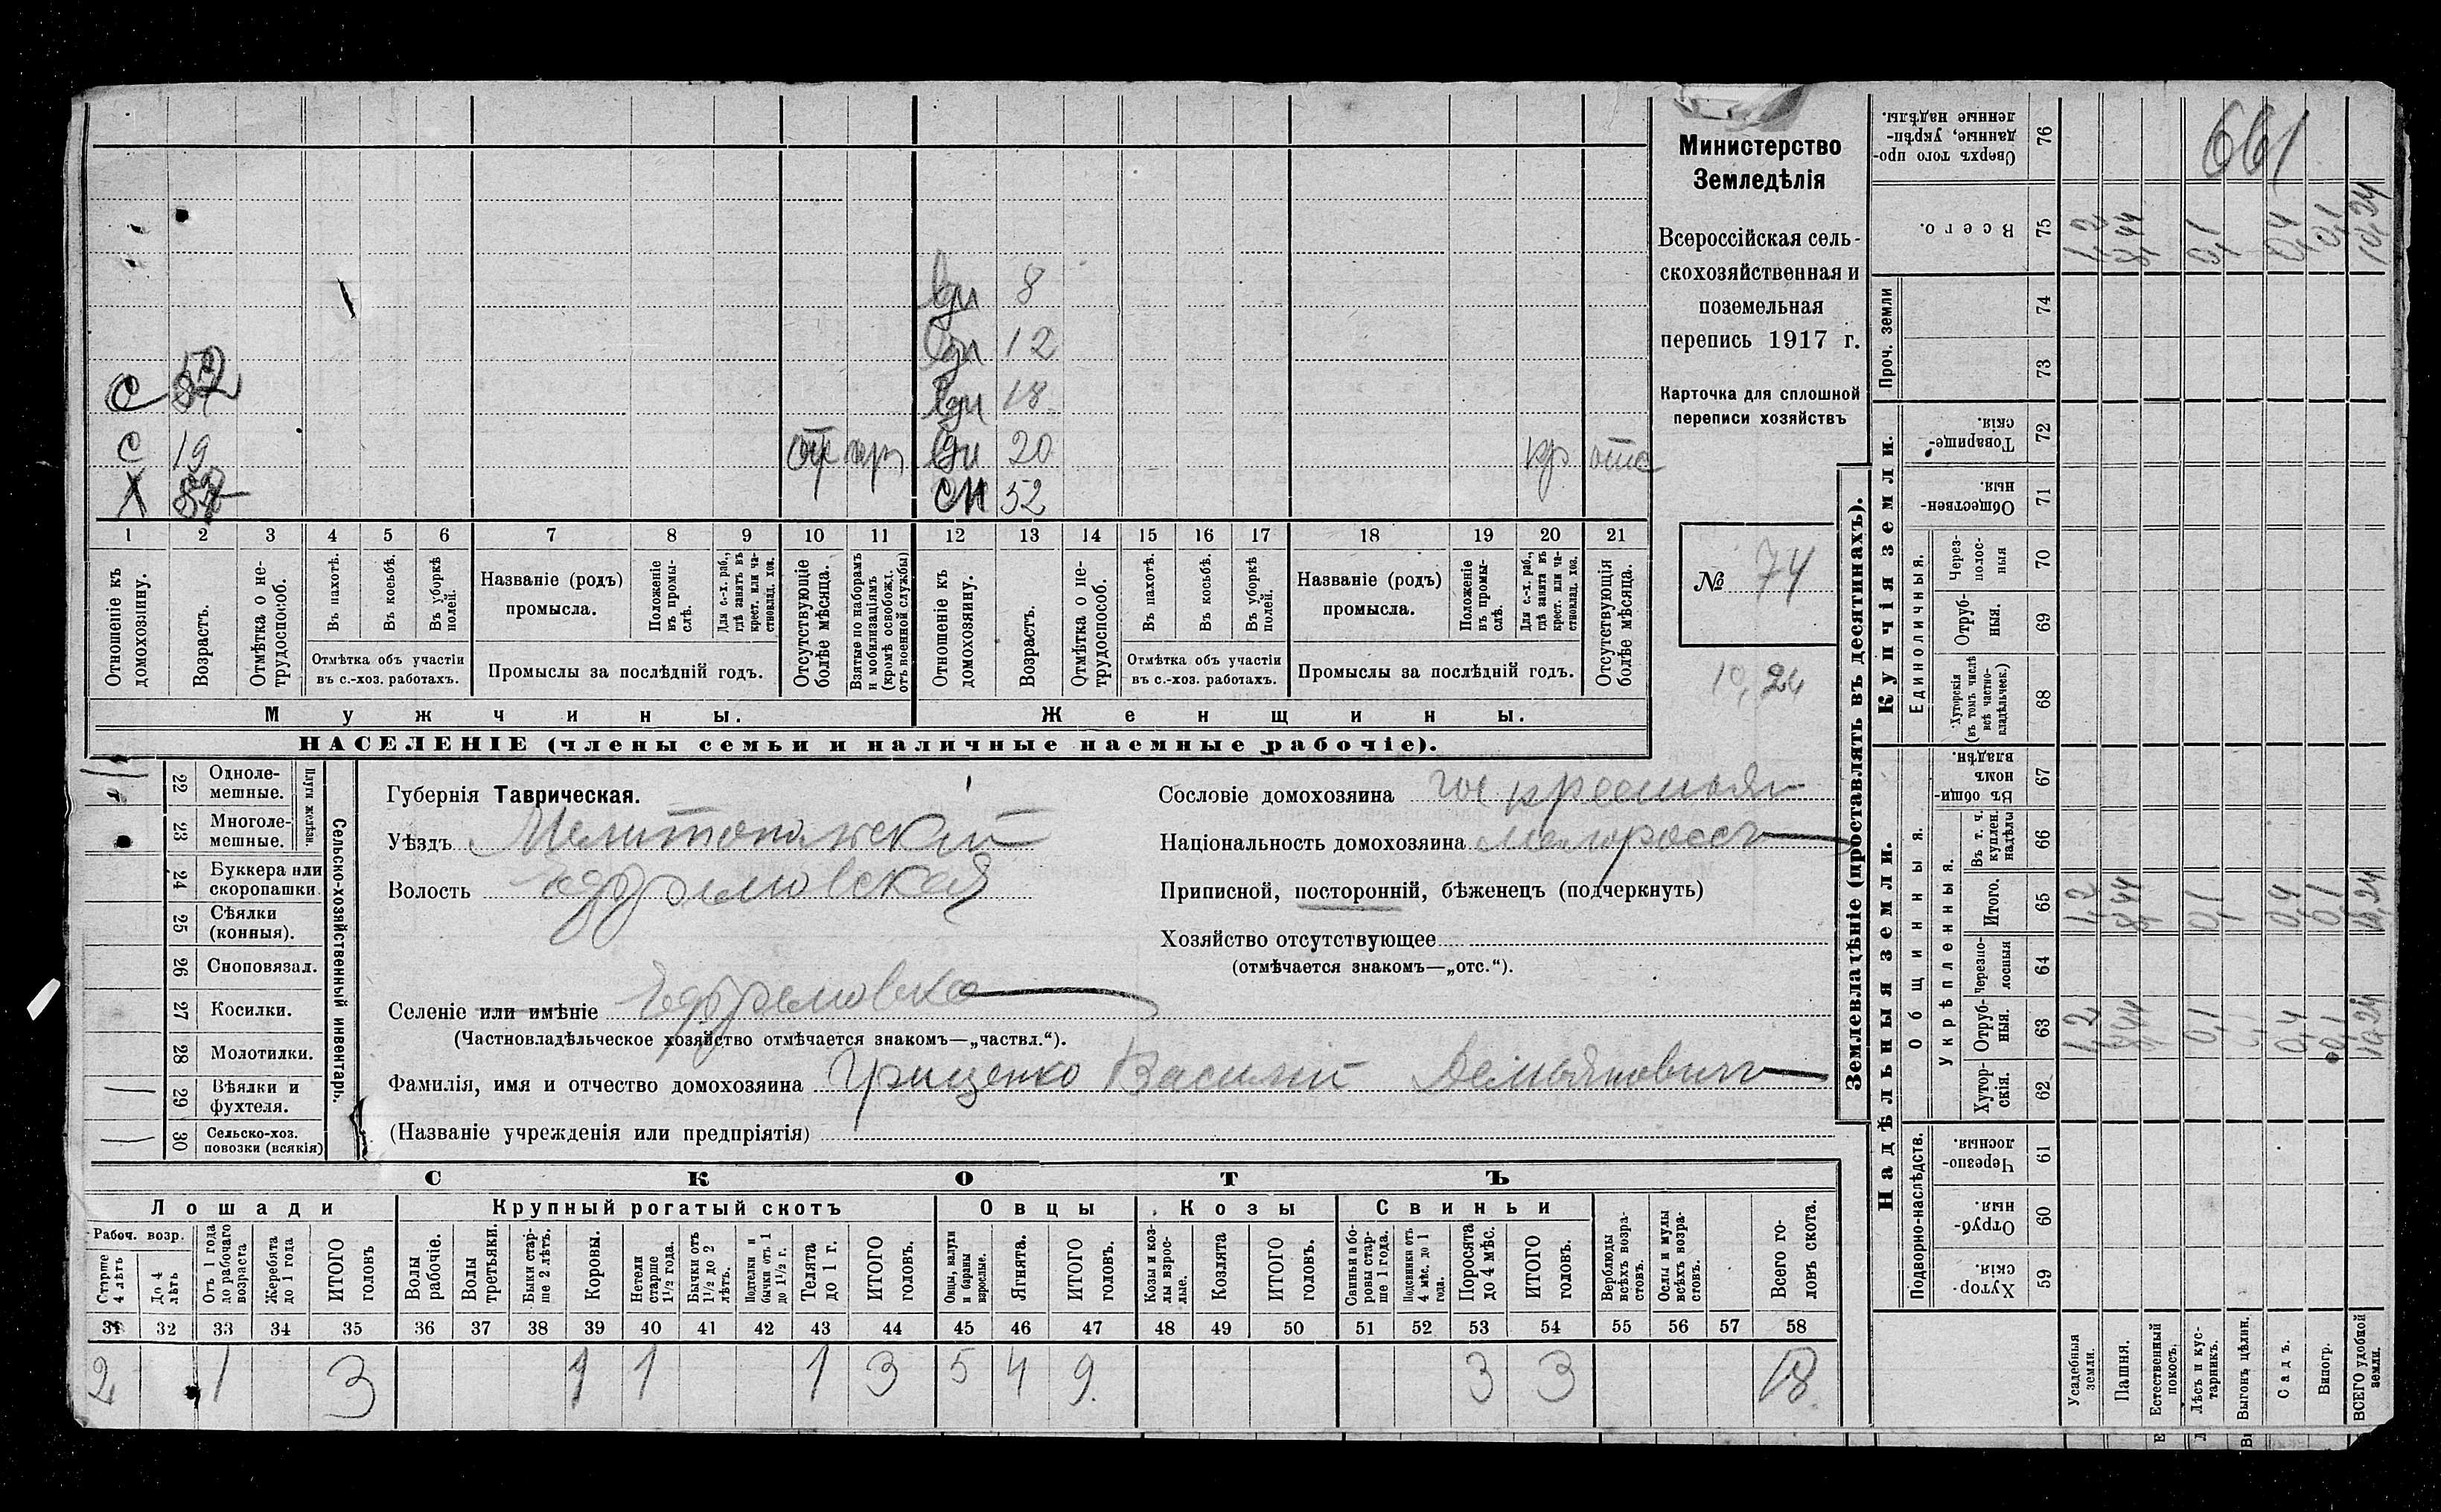 С 52 вдч 8
вдч 12
вдч 18
С 19 отс вдч 20 кр отс
Х СН 52
1 2 3 4 5 6 7 8 9 10 11 12 13 14 15 16 17 18 19 20 21
Отношеніе къ домохозяину.
Возрастъ.
Отмѣтка о не-трудоспособ.
Въ пахотѣ.
Въ косьбѣ.
Въ уборкѣ полей.
Отмѣтка объ участіи
въ с.-хоз. работахъ.
Названіе (родъ)
промысла.
Положеніе въ промы-слѣ.
Для с.-х. раб., гдѣ занятъ въ крест. или ча-стновлад. хоз.
Промыслы за послѣдній годъ.
Отсутствующіе болѣе мѣсяца.
Взятые по наборамъ и мобилизаціямъ (кромѣ освобожд. отъ военной службы)
Отношеніе къ домохозяину.
Возрастъ.
Отмѣтка о не-трудоспособ.
Въ пахотѣ.
Въ косьбѣ.
Въ уборкѣ полей.
Отмѣтка объ участіи
въ с.-хоз. работахъ.
Названіе (родъ)
промысла.
Положеніе въ промы-слѣ.
Для с.-х. раб., гдѣ занята въ крест. или ча-стновлад. хоз.
Промыслы за послѣдній годъ.
Отсутствующія болѣе мѣсяца.
Мужчины.
Женщины.
НАСЕЛЕНІЕ (члены семьи и наличные наемные рабочіе).
Министерство
Земледѣлія
Всероссійская сель-
скохозяйственная и
поземельная
перепись 1917 г.
Карточка для сплошной
переписи хозяйствъ
№ 74
10,24
22 Одноле-
мешные.
23 Многоле-
мешные.
Плуги желѣзн.
24 Буккера или
скоропашки.
25 Сѣялки
(конныя).
26 Сноповязал.
27 Косилки.
28 Молотилки.
29 Вѣялки и
фухтеля.
30 Сельско-хоз.
повозки (всякія)
Сельско-хозяйственный инвентарь.
Губернія Таврическая.
Уѣздъ Мелитопольскій
Волость Ефремовская
Селеніе или имѣніе Ефремовка
(Частновладѣльческое хозяйство отмѣчается знакомъ—„частвл.“).
Фамилія, имя и отчество домохозяина Грищенко Василій Демьяновичъ
(Названіе учрежденія или предпріятія)
Сословіе домохозяина крестьян
Національность домохозяина малороссъ
Приписной, посторонній, бѣженецъ (подчеркнуть)
Хозяйство отсутствующее
(отмѣчается знакомъ—„отс.“).
СКОТЪ
Лошади
Крупный рогатый скотъ
Овцы
Козы
Свиньи
Рабоч. возр.
Старше 4 лѣтъ
До 4 лѣтъ
Отъ 1 года до рабочаго возраста
Жеребята до 1 года
ИТОГО головъ
Волы рабочіе.
Волы третьяки.
Быки стар-ше 2 лѣтъ.
Коровы.
Нетели старше 1½ года.
Бычки отъ 1½ до 2 лѣтъ.
Подтелки и бычки отъ 1 до 1½ г.
Телята до 1 г.
ИТОГО головъ.
Овцы, валухи и бараны взрослые.
Ягнята.
ИТОГО головъ.
Козы и коз-лы взрос-лые.
Козлята
ИТОГО головъ.
Свиньи и бо-ровы стар-ше 1 года.
Подсвинки отъ 4 мѣс. до 1 года.
Поросята до 4 мѣс.
ИТОГО головъ.
Верблюды всѣхъ возра-стовъ.
Ослы и мулы всѣхъ возра-стовъ.
Всего го-ловъ скота.
31 32 33 34 35 36 37 38 39 40 41 42 43 44 45 46 47 48 49 50 51 52 53 54 55 56 57 58
2 1 3 1 1 1 3 5 4 9 3 3 18
Землевладѣніе (проставлять въ десятинахъ).
Надѣльныя земли.
Купчія земли.
Проч. земли
Подворно-наслѣдств.
Общинныя.
Укрѣпленныя.
Единоличныя.
Хутор-скія. 59
Отруб-ныя. 60
Черезпо-лосныя 61
Хутор-скія. 62
Отруб-ныя. 63
Черезпо-лосныя 64
Итого. 65
Въ т. ч. куплен. надѣлы 66
Въ общин-номъ владѣн. 67
Хуторскія (въ томъ числѣ всѣ частно-владѣльческ.) 68
Отруб-ныя. 69
Через-полос-ныя 70
Обществен-ныя. 71
Товарище-скія 72
73
74
Всего. 75
Сверхъ того про-данные, укрѣп-ленные надѣлы. 76
Усадебныя земли.
Пашня.
Естественный покосъ.
Лѣсъ и кус-тарникъ.
Выгонъ цѣлин.
Садъ.
Виногр.
ВСЕГО удобной земли.
1,2 8,44 0,1 0,4 0,1 10,24
1,2 8,44 0,1 0,4 0,1 10,24
1,2 8,44 0,1 0,4 0,1 10,24
661